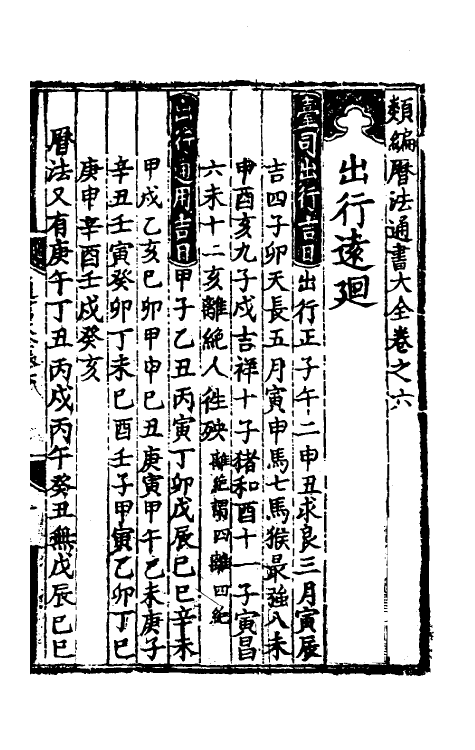 類編曆法通書大全卷之六
出行遠廻
臺司出行吉日 出行正子午二申丑求良三月寅辰
吉四子卯天長五月寅申馬七馬猴最強八未
申酉亥九子戌吉祥十子猪和酉十一子寅昌
六未十二亥離絶人徃殃 離絶謂四離四絶
出行通用吉日 甲子乙丑丙寅丁卯戊辰己巳辛未
甲戌乙亥己卯甲申己丑庚寅甲午乙未庚子
辛丑壬寅癸卯丁未己酉壬子甲寅乙卯丁巳
庚申辛酉壬戌癸亥
曆法又有庚午丁丑丙戌丙午癸丑無戊辰己巳